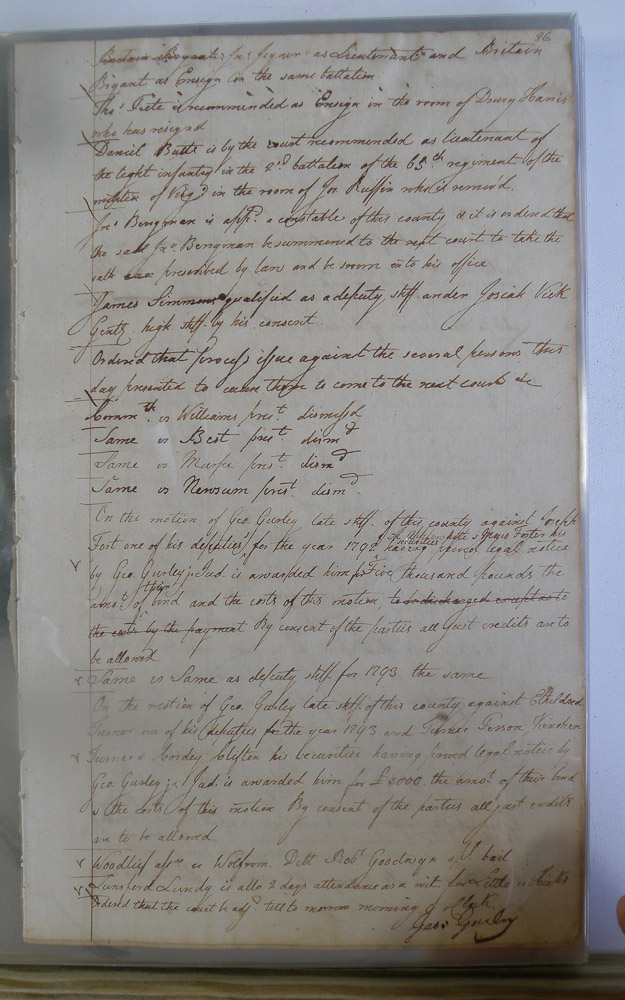 86
Jno. Joyner as Lieutenant and Britain
Bryant as Ensign in the same battalion
Thos. Pete is recommended as Ensign in the room of Drury Harris
who has resign'd
Daniel Butts is by the court recommended as lieutenant of
the light infantry in the 2d. battalion of the 65th regiment of the
militia of Virga. in the room of Jos. Ruffin who is remov'd.
Jno. Bengman is appd. a constable of this county & it is orderd that
the said Jno. Bengman be summoned to the next court to take the
oath prescribed by law and be sworn into his office
James Simmons qualified as a deputy shff. under Josiah Vick
Gentn. high shff. by his consent
Ordered that process issue against the several persons this
day presented to cause them to come to the next court &c
Commth. vs Williams prest. dismissd
Same vs Best prest. dismd
Same vs prest. dismd
Same vs Newsum prest. dismd.
On the motion of Geo. Gurley late shff. of this county against Joseph
Fort one of his deputies, for the year 1792 having proved legal notice
securities Foster his
by Geo. Gurley jr. Jud. is awarded him for Five thousand pounds the
amot. of their bond and the costs of this motion, to be discharged except as to
the costs by the payment By consent of the parties all just credits are to
be allowed
Same vs Same as deputy shff. for 1793 the same
On the motion of Geo. Gurley late shff. of this county against Etheldred
Turner one of his deputies for the year 1793 and Turner Person Kinchen
Turner & Cordey Clifton his securities having proved legal notice by
Geo Gurley jr. Jud. is awarded him for £5000. the amot. of their bond
& the costs of this motion By consent of the parties all just credits
are to be allowed
Woodlief assee. vs Wolfrom. Debt Robt. Goodwyn sp. bail
Lunsford Lundy is allo 2 days attendance as a wit. for Little vs Hicks
Ordered that the court be adjd. till to morrow morning 9 oClock.
Geo: Gurley